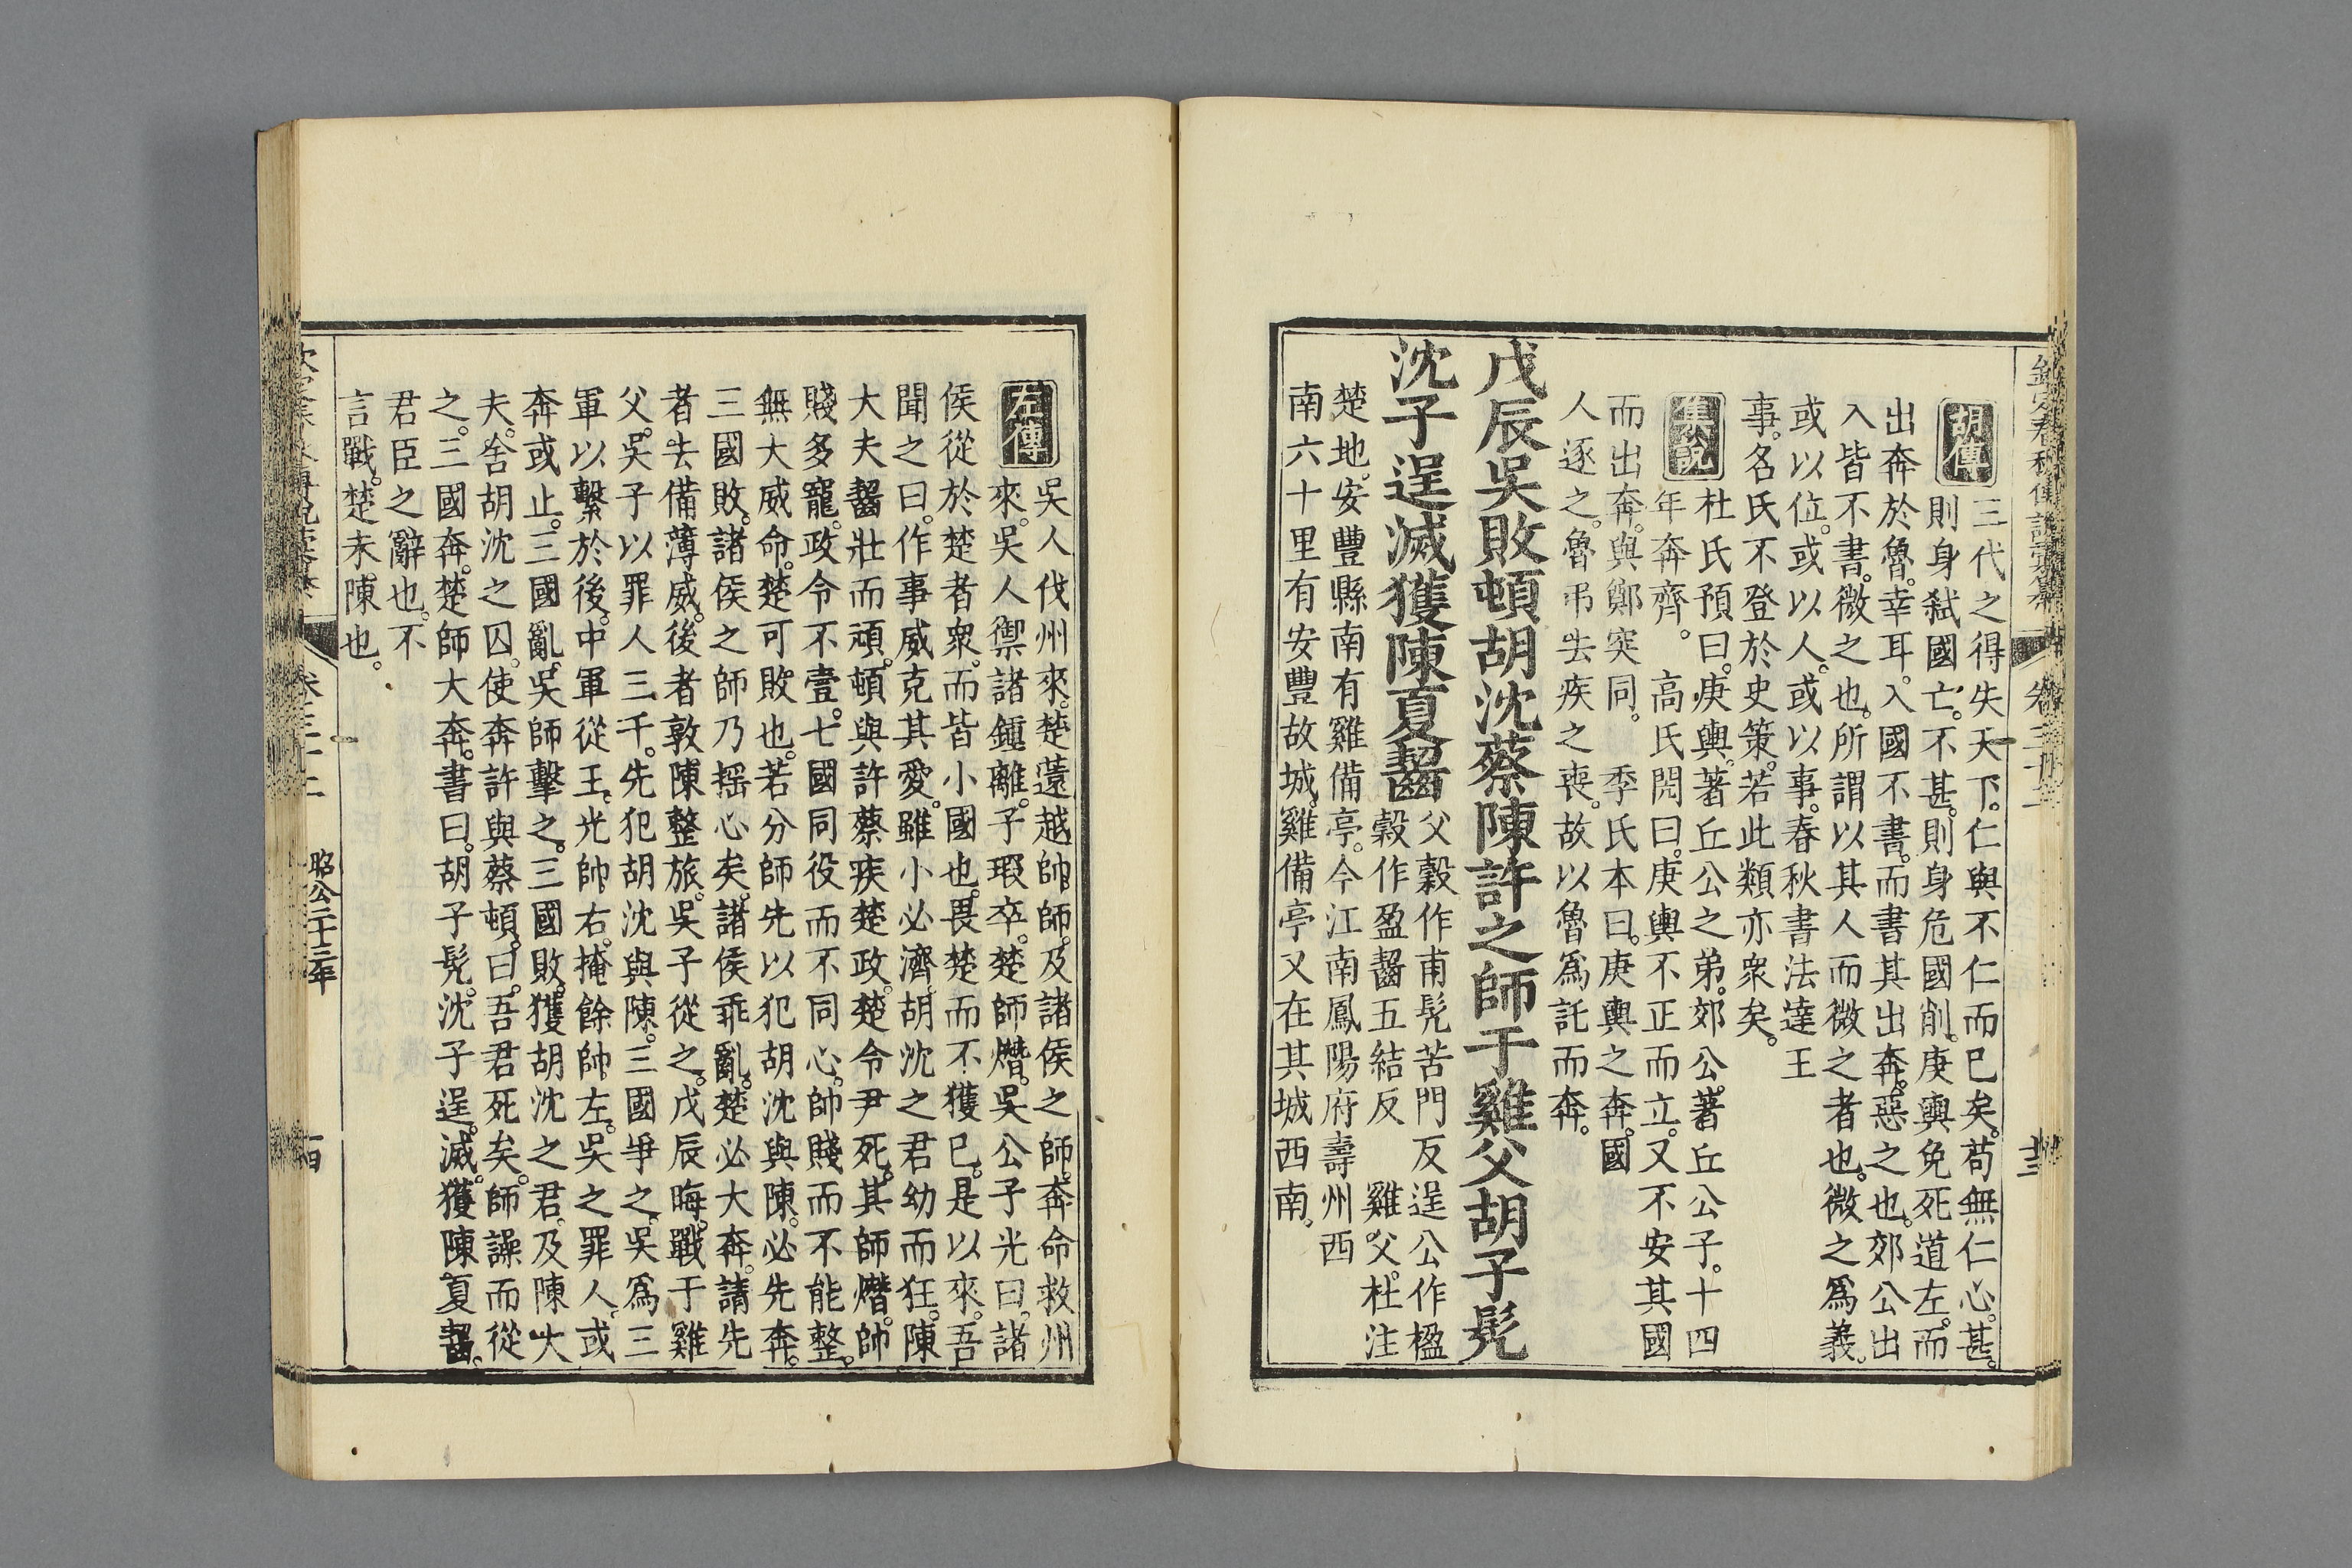 欽定春秋傳說彙纂
卷三十二
胡傳
三代之得失天下。仁與不仁而已矣。苟無仁心。甚。
則身弑國亡。不甚。則身危國削。庚輿免死道左。而
出奔於魯。幸耳。入國不書。而書其出奔。惡之也。郊公出
入皆不書。微之也。所謂以其人而微之者也。微之爲義。
或以位。或以人。或以事。春秋書法達王
事。名氏不登於史策。若此類亦衆矣。
集說
杜氏預曰。庚輿。著丘公之弟。郊公。著丘公子。十四
年奔齊。高氏閌曰。庚輿不正而立。又不安其國
而出奔。與鄭突同。季氏本曰。庚輿之奔。國
人逐之。魯弔去疾之喪。故以魯爲託而奔。
戊辰吳敗頓胡沈蔡陳許之師于雞父胡子髡
沈子逞滅獲陳夏齧
父穀作甫髡苦門反逞公作楹
穀作盈齧五結反 雞父。杜注
楚地。安豐縣南有雞備亭。今江南鳳陽府壽州西
南六十里有安豐故城。雞備亭又在其城西南。
左傳
吳人伐州來。楚薳越帥師。及諸侯之師。奔命救州
來。吳人禦諸鍾離。子瑕卒。楚師熸。吳公子光曰。諸
侯從於楚者衆。而皆小國也。畏楚而不獲已。是以來。吾
聞之曰。作事威克其愛。雖小必濟。胡沈之君幼而狂。陳
大夫齧壯而頑。頓與許蔡疾楚政。楚令尹死。其師熸。帥
賤多寵。政令不壹。七國同役而不同心。帥賤而不能整。
無大威命。楚可敗也。若分師先以犯胡沈與陳。必先奔。
三國敗。諸侯之師乃搖心矣。諸侯乖亂。楚必大奔。請先
者去備薄威。後者敦陳整旅。吳子從之。戊辰晦。戰于雞
父。吳子以罪人三千。先犯胡沈與陳。三國爭之。吳爲三
軍以繫於後。中軍從王。光帥右。掩餘帥左。吳之罪人。或
奔或止。三國亂。吳師擊之。三國敗。獲胡沈之君。及陳大
夫。舍胡沈之囚。使奔許與蔡頓。曰。吾君死矣。師譟而從
之。三國奔。楚師大奔。書曰。胡子髡。沈子逞。滅。獲陳夏齧。
君臣之辭也。不
言戰。楚未陳也。
昭公二十三年